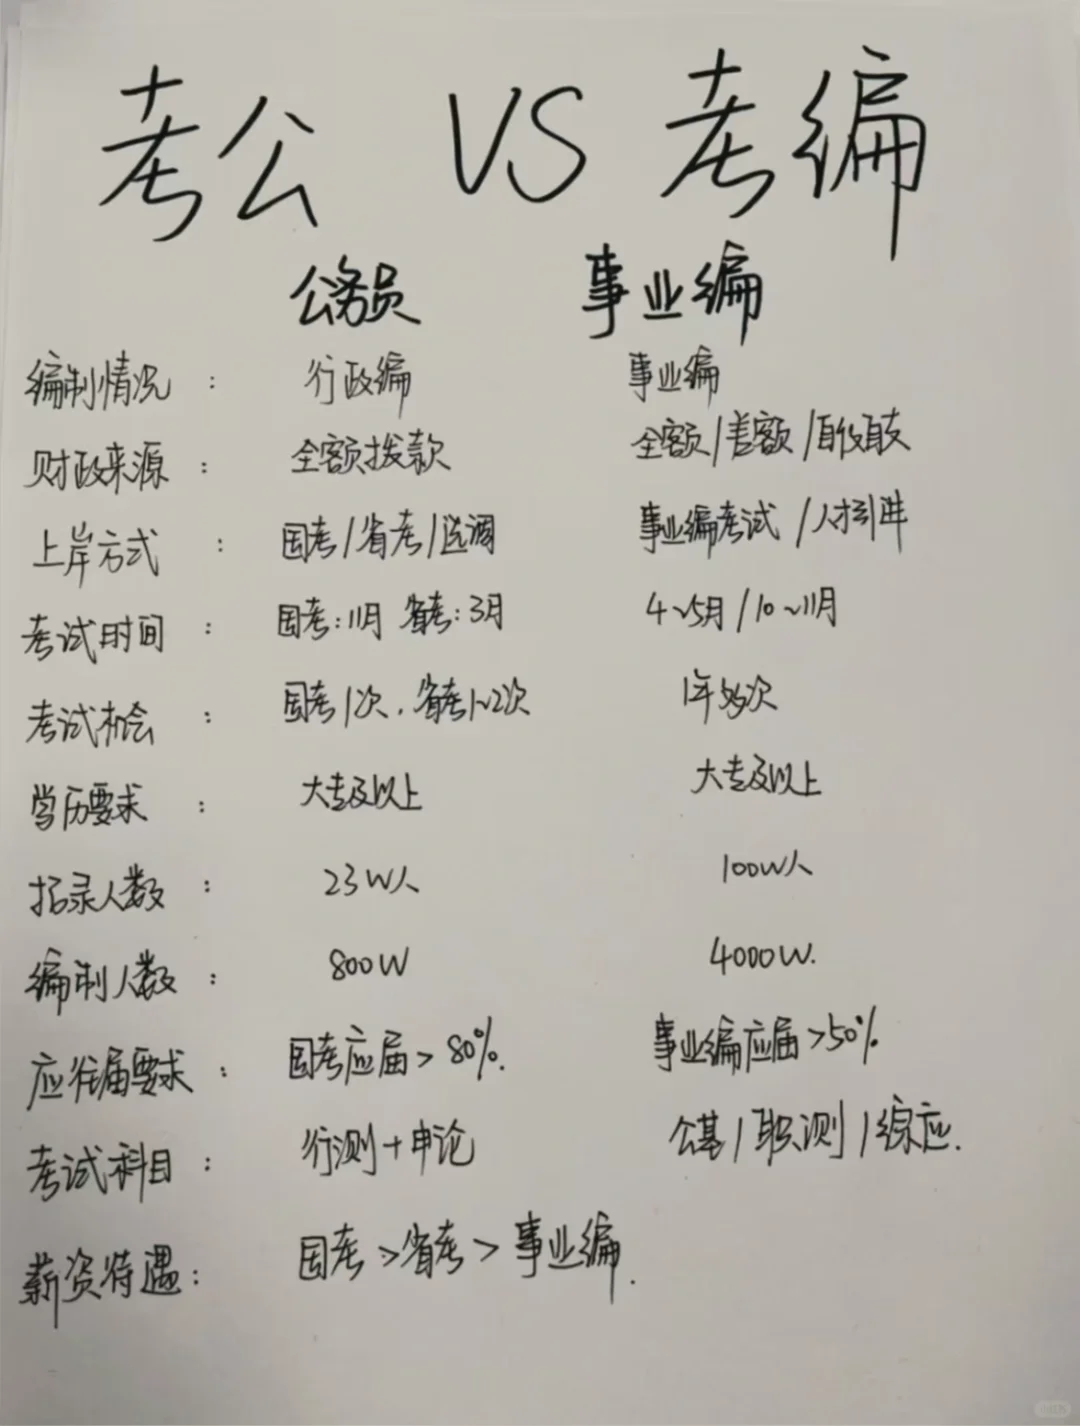 考公 VS 考编
公务员 事业编
编制情况 : 行政编 事业编
财政来源 : 全额拨款 全额/差额/自收自支
上岸方式 : 国考/省考/选调 事业编考试/人才引进
考试时间 : 国考:11月 省考:3月 4~5月/10~11月
考试机会 : 国考1次.省考1~2次 1年多次
学历要求 : 大专及以上 大专及以上
招录人数 : 23W人 100W人
编制人数 : 800W 4000W.
应往届要求 : 国考应届>80%. 事业编应届>50%
考试科目 : 行测+申论 公基/职测/综应.
薪资待遇 : 国考>省考>事业编.